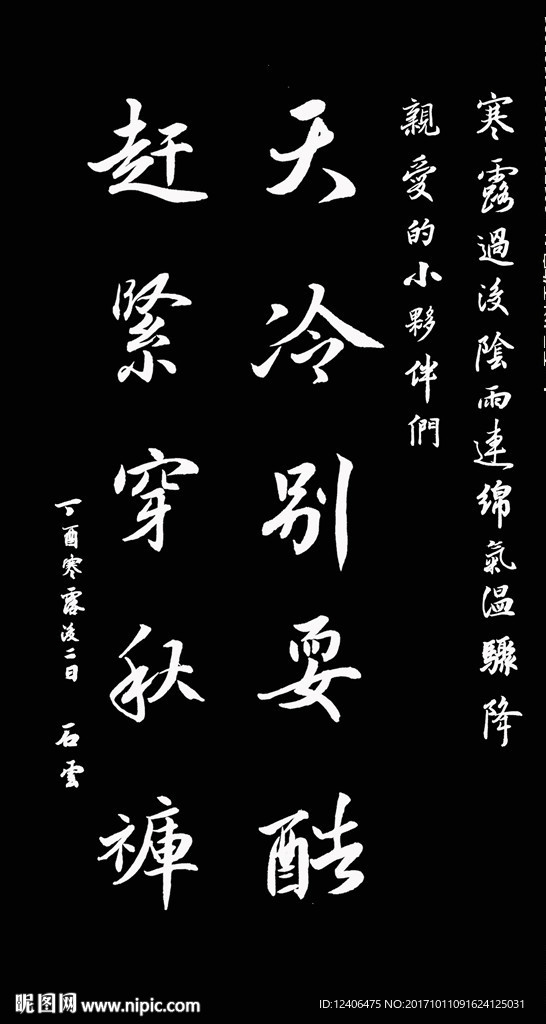 寒露過後陰雨連綿氣溫驟降
親愛的小夥伴們
天冷别耍酷
趕緊穿秋褲
丁酉寒露後二日 石雲
昵图网 www.nipic.com
ID:12406475 NO:20171011091624125031